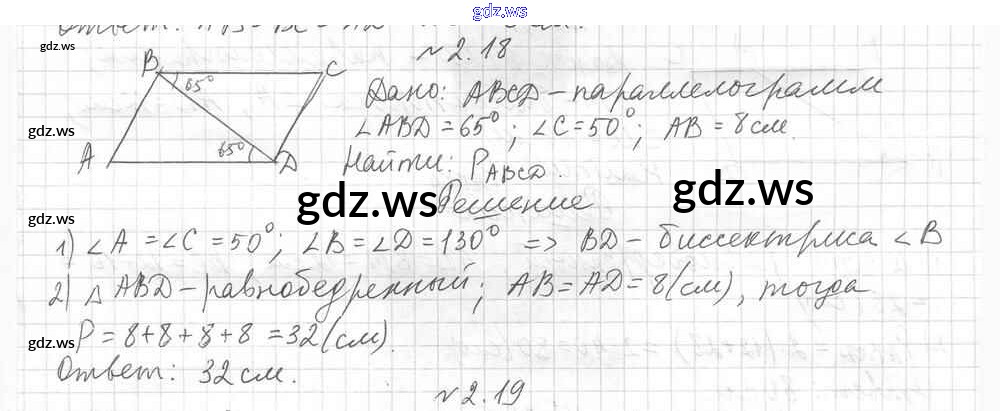 gdz.ws
gdz.ws
№2.18
B C
65°
Дано: ABCD - параллелограмм
gdz.ws
∠ABD = 65°; ∠C = 50°; AB = 8 см.
65°
A D
Найти: P ABCD.
gdz.ws gdz.ws
Решение
gdz.ws
1) ∠A = ∠C = 50°; ∠B = ∠D = 130° => BD - биссектриса ∠B
2) △ABD - равнобедренный; AB = AD = 8 (см), тогда
gdz.ws
P = 8 + 8 + 8 + 8 = 32 (см).
Ответ: 32 см.
№2.19